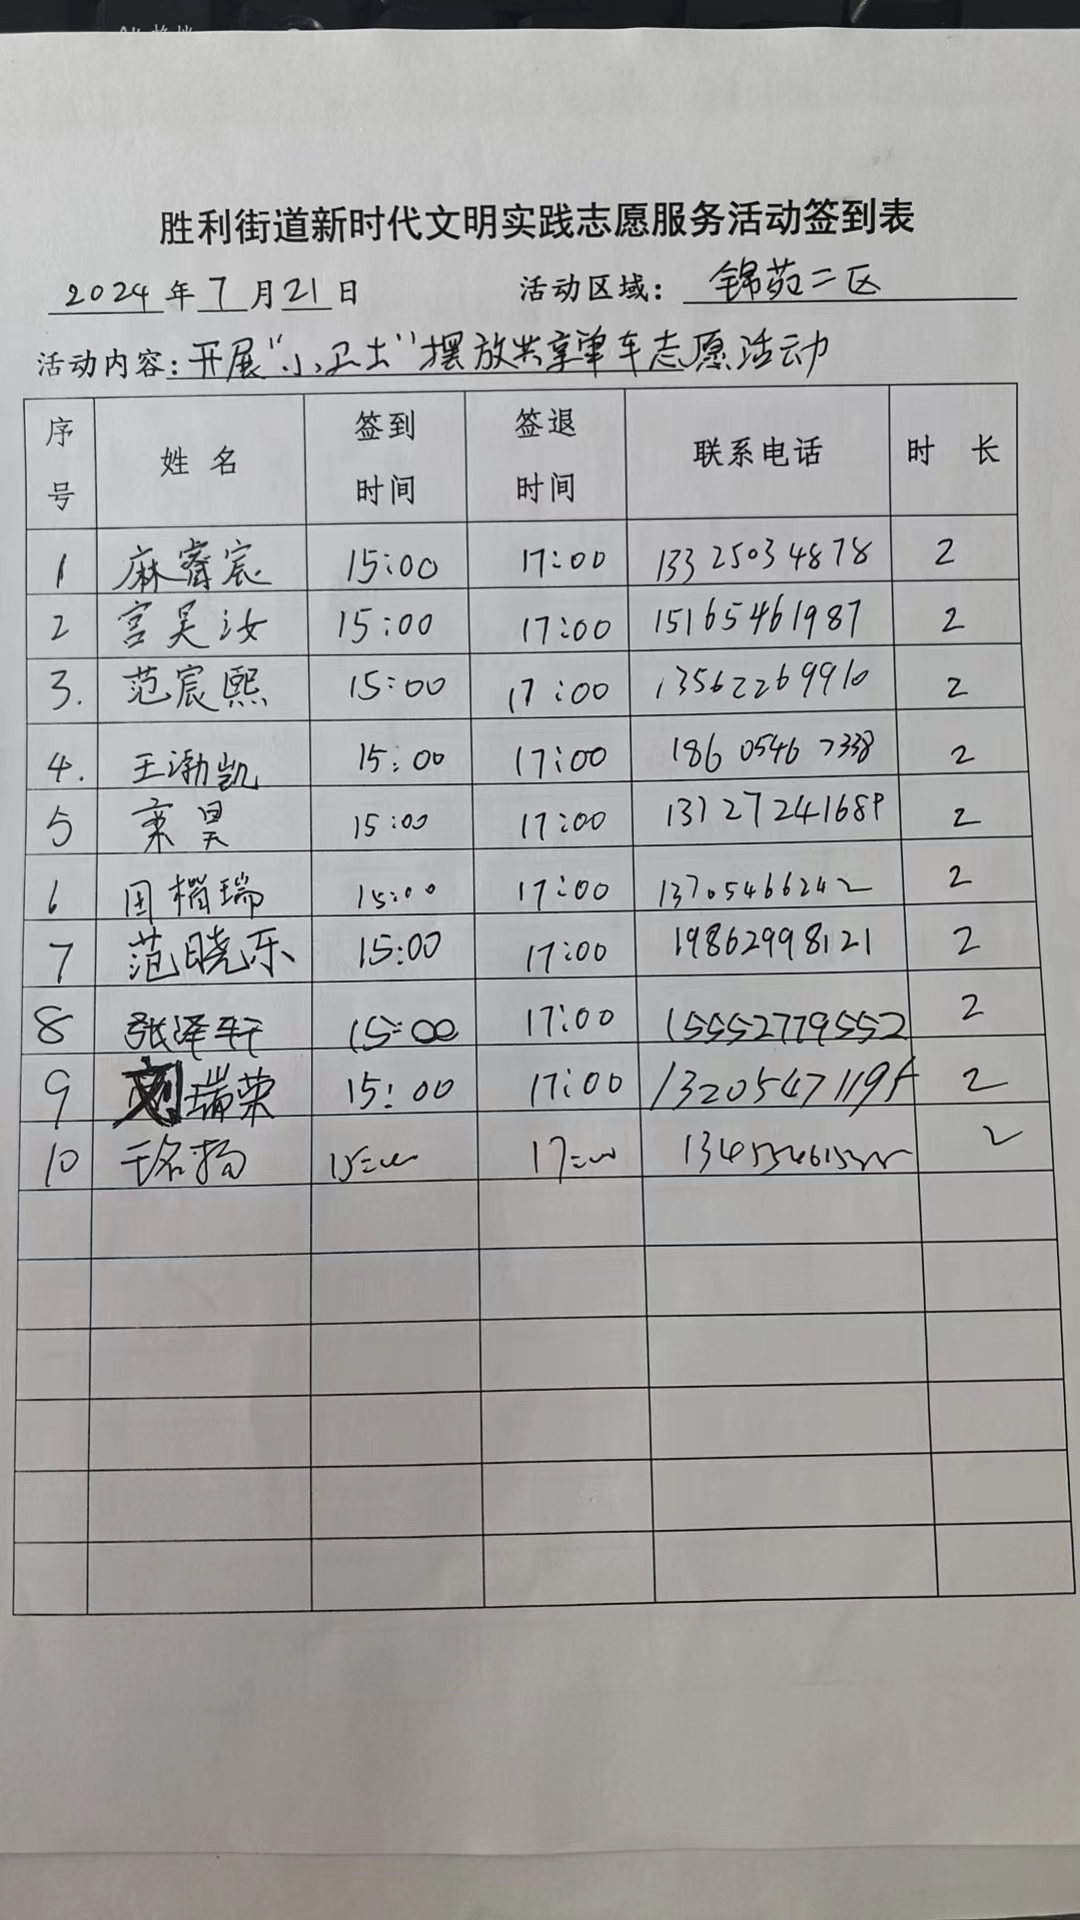 胜利街道新时代文明实践志愿服务活动签到表
2024年7月21日 活动区域：锦苑二区
活动内容：开展“小卫士”摆放共享单车志愿活动
序号 姓名 签到时间 签退时间 联系电话 时长
1 麻睿宸 15:00 17:00 13325034878 2
2 宫昊汝 15:00 17:00 15165461987 2
3. 范宸熙 15:00 17:00 13562269910 2
4. 王渤凯 15:00 17:00 18605467338 2
5 昊 15:00 17:00 2
6 瑞 15:00 17:00 13705466242 2
7 范晓乐 15:00 17:00 19862998121 2
8 张泽轩 15:00 17:00 15552779552 2
9 刘瑞荣 15:00 17:00 2
10 名扬 15:00 17:00 2